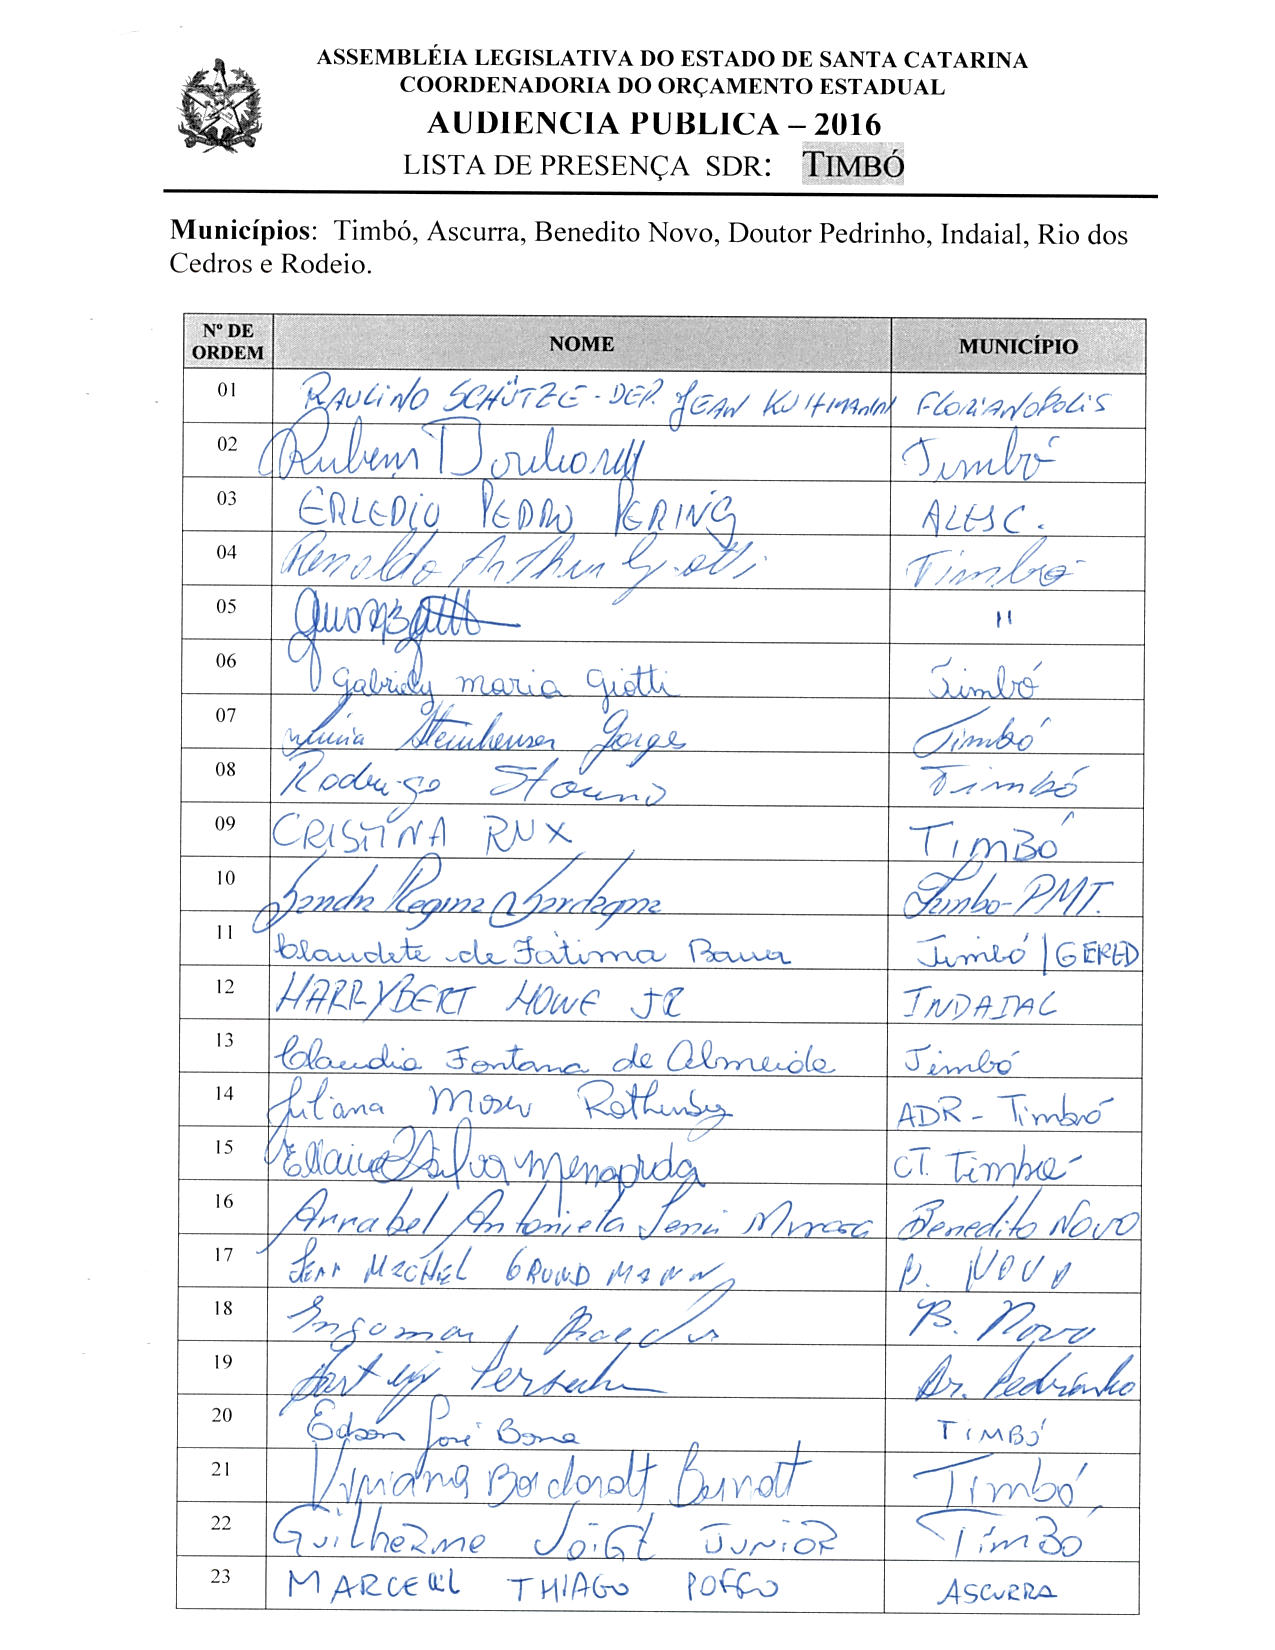 ASSEMBLÉIA LEGISLATIVA DO ESTADO DE SANTA CATARINA
COORDENADORIA DO ORÇAMENTO ESTADUAL
AUDIENCIA PUBLICA – 2016
LISTA DE PRESENÇA SDR: TIMBÓ
Municípios: Timbó, Ascurra, Benedito Novo, Doutor Pedrinho, Indaial, Rio dos
Cedros e Rodeio.
Nº DE ORDEM NOME MUNICÍPIO
01 RAULINO SCHÜTZE - DEP. JEAN KUHLMANN FLORIANOPOLIS
02 Rubens Timbó
03 ERLEDIO PEDRO PERING ALESC.
04 Renoldo Arthur Giotti Timbó
05 "
06 Gabriely maria Giotti Timbó
07 Steinheuser Jorge Timbó
08 Rodrigo Timbó
09 CRISTINA RUX TIMBÓ
10 Sandra Regina Timbo-PMT.
11 Claudete de Fátima Timbó/GERED
12 HARRYBERT HOWE JR INDAIAL
13 Claudia Fontana de Almeida Timbó
14 Juliana Moser ADR - Timbó
15 Silva CT. Timbó
16 Annabel Antonieta Benedito NOVO
17 GRUNDMANN B. NOVO
18 Ingomar B. Novo
19 Dr. Pedrinho
20 Edson José Bona TIMBÓ
21 Viviana Timbó
22 Guilherme Voigt JUNIOR TIMBÓ
23 THIAGO POFFO ASCURRA